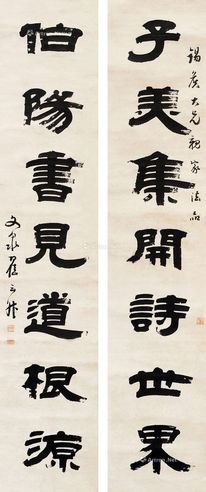 錫侯大兄親家法
子美集開詩世界
伯陽書見道根源
文泉崔